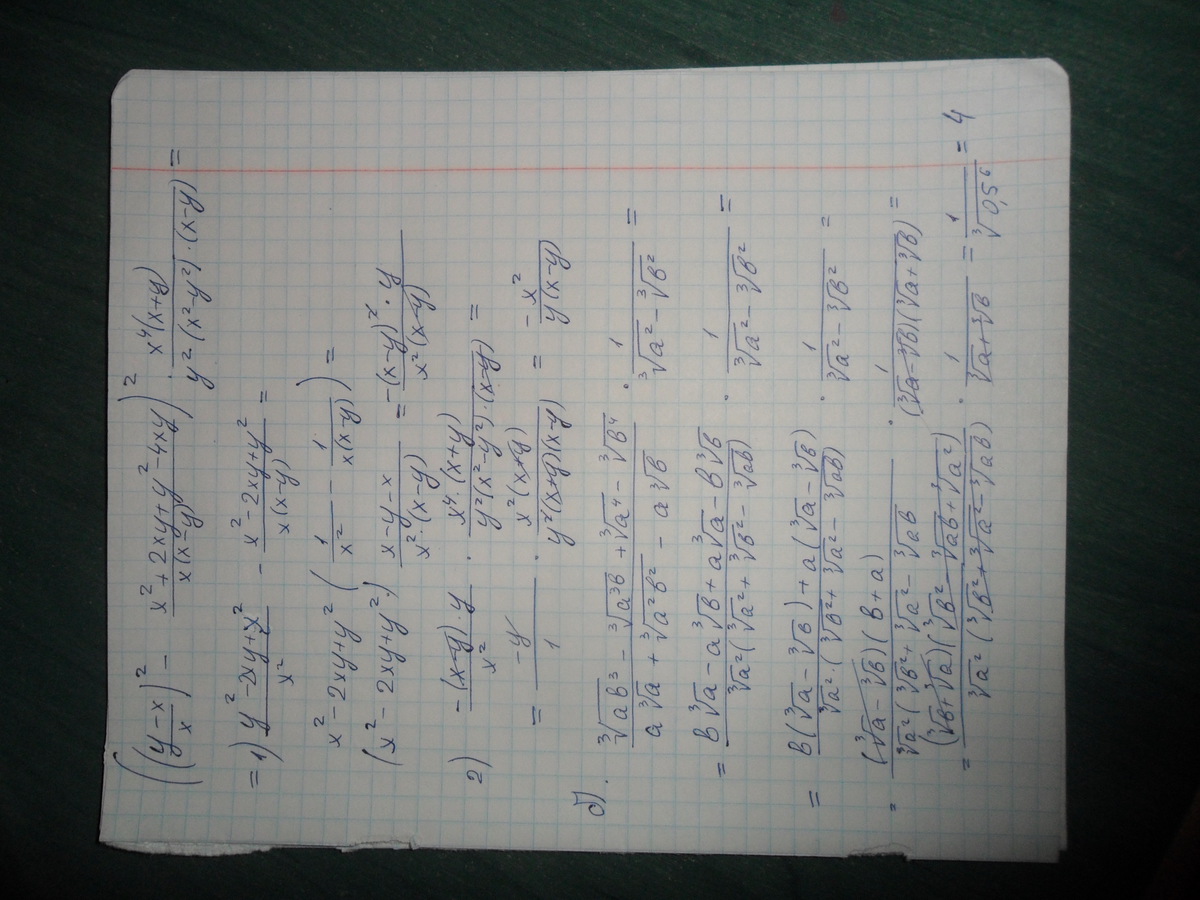 ((y-x)/x)² - (x²+2xy+y²-4xy)/(x(x-y)))² · (x⁴(x+y))/(y²·(x²-y²)·(x-y)) =
= 1) (y²-2xy+x²)/x² - (x²-2xy+y²)/(x(x-y)) =
x²-2xy+y² (1/x² - 1/(x(x-y))) =
(x²-2xy+y²) (x-y-x)/(x²·(x-y)) = (-(x-y)²·y)/(x²(x-y))
2) (-(x-y)·y)/x² · (x⁴·(x+y))/(y²(x²-y²)·(x-y)) =
= -y/1 · (x²(x+y))/(y²(x+y)(x-y)) = - x²/(y(x-y))
б). (∛(ab³) - ∛(a³b) + ∛(a⁴) - ∛(b⁴))/(a∛a + ∛(a²b²) - a∛b) · 1/(∛a² - ∛b²) =
= (b∛a - a∛b + a∛a - b∛b)/(∛a²(∛a² + ∛b² - ∛ab)) · 1/(∛a² - ∛b²) =
= (b(∛a - ∛b) + a(∛a - ∛b))/(∛a²·(∛b² + ∛a² - ∛ab)) · 1/(∛a² - ∛b²) =
= ((∛a - ∛b)(b+a))/(∛a²(∛b² + ∛a² - ∛ab)) · 1/((∛a - ∛b)(∛a + ∛b)) =
= ((∛b + ∛a)(∛b² - ∛ab + ∛a²))/(∛a²(∛b² + ∛a² - ∛ab)) · 1/(∛a + ∛b) = 1/∛(0,5⁶) = 4